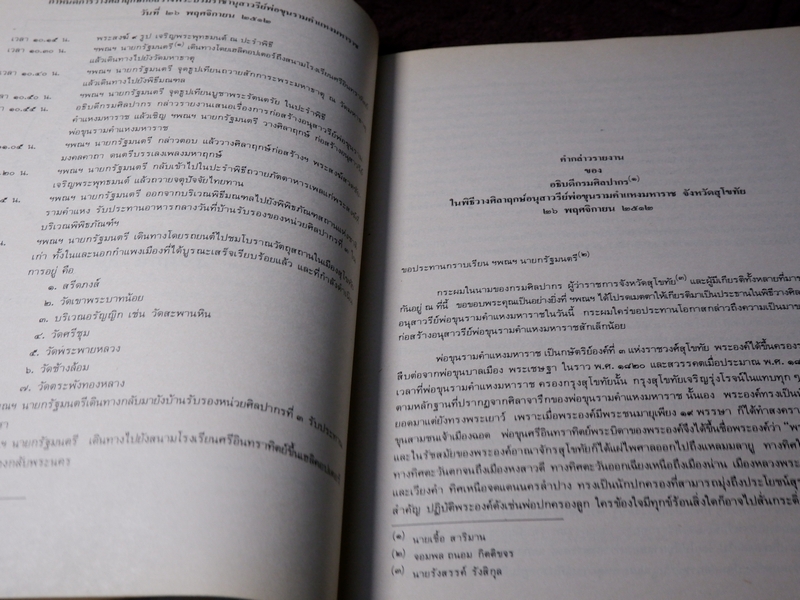 กำหนดการวางศิลาฤกษ์อนุสาวรีย์พ่อขุนรามคำแหงมหาราช
วันที่ ๒๖ พฤศจิกายน ๒๕๑๒
เวลา ๑๐.๑๕ น. พระสงฆ์ ๙ รูป เจริญพระพุทธมนต์ ณ ปะรำพิธี
เวลา ๑๐.๓๐ น. ฯพณฯ นายกรัฐมนตรี(๑) เดินทางโดยเฮลิคอปเตอร์ถึงสนามโรงเรียนศรีอินทราทิตย์
แล้วเดินทางไปยังวัดมหาธาตุ
เวลา ๑๐.๔๐ น. ฯพณฯ นายกรัฐมนตรี จุดธูปเทียนถวายสักการะพระมหาธาตุ ณ วัดมหาธาตุ
แล้วเดินทางไปยังพิธีมณฑล
๑๐.๕๐ น. ฯพณฯ นายกรัฐมนตรี จุดธูปเทียนบูชาพระรัตนตรัย ในปะรำพิธี
๑๐.๕๕ น. อธิบดีกรมศิลปากร กล่าวรายงานเสนอเรื่องการก่อสร้างอนุสาวรีย์พ่อขุนราม
คำแหงมหาราช แล้วเชิญ ฯพณฯ นายกรัฐมนตรี วางศิลาฤกษ์ ก่อสร้างอนุสาวรีย์
พ่อขุนรามคำแหงมหาราช
๑.๐๕ น. ฯพณฯ นายกรัฐมนตรี กล่าวตอบ แล้ววางศิลาฤกษ์ก่อสร้างฯ พระสงฆ์สวดชัย
มงคลคาถา ดนตรีบรรเลงเพลงมหาฤกษ์
๒๐ น. ฯพณฯ นายกรัฐมนตรี กลับเข้าไปในปะรำพิธีถวายภัตตาหารเพลแก่พระสงฆ์ที่
เจริญพระพุทธมนต์ แล้วถวายจตุปัจจัยไทยทาน
๕ น. ฯพณฯ นายกรัฐมนตรี ออกจากบริเวณพิธีมณฑลไปยังพิพิธภัณฑสถานแห่งชาติ
รามคำแหง รับประทานอาหารกลางวันที่บ้านรับรองของหน่วยศิลปากรที่ ๓ ใน
บริเวณพิพิธภัณฑ์ฯ
น. ฯพณฯ นายกรัฐมนตรี เดินทางโดยรถยนต์ไปชมโบราณวัตถุสถานในเมืองสุโขทัย
เก่า ทั้งในและนอกกำแพงเมืองที่ได้บูรณะเสร็จเรียบร้อยแล้ว และที่กำลังดำเนิน
การอยู่ คือ
๑. สรีดภงส์
๒. วัดเขาพระบาทน้อย
๓. บริเวณอรัญญิก เช่น วัดสะพานหิน
๔. วัดศรีชุม
๕. วัดพระพายหลวง
๖. วัดช้างล้อม
๗. วัดตระพังทองหลาง
ฯพณฯ นายกรัฐมนตรีเดินทางกลับมายังบ้านรับรองหน่วยศิลปากรที่ ๓ รับประทาน
ฯ นายกรัฐมนตรี เดินทางไปยังสนามโรงเรียนศรีอินทราทิตย์ขึ้นเฮลิคอปเตอร์
งกลับพระนคร
คำกล่าวรายงาน
ของ
อธิบดีกรมศิลปากร(๑)
ในพิธีวางศิลาฤกษ์อนุสาวรีย์พ่อขุนรามคำแหงมหาราช จังหวัดสุโขทัย
๒๖ พฤศจิกายน ๒๕๑๒
ขอประทานกราบเรียน ฯพณฯ นายกรัฐมนตรี(๒)
กระผมในนามของกรมศิลปากร ผู้ว่าราชการจังหวัดสุโขทัย(๓) และผู้มีเกียรติทั้งหลายที่มา
กันอยู่ ณ ที่นี้ ขอขอบพระคุณเป็นอย่างยิ่งที่ ฯพณฯ ได้โปรดเมตตาให้เกียรติมาเป็นประธานในพิธีวางศิลา
อนุสาวรีย์พ่อขุนรามคำแหงมหาราชในวันนี้ กระผมใคร่ขอประทานโอกาสกล่าวถึงความเป็นมาข
ก่อสร้างอนุสาวรีย์พ่อขุนรามคำแหงมหาราชสักเล็กน้อย
พ่อขุนรามคำแหงมหาราช เป็นกษัตริย์องค์ที่ ๓ แห่งราชวงศ์สุโขทัย พระองค์ได้ขึ้นครองรา
สืบต่อจากพ่อขุนบาลเมือง พระเชษฐา ในราว พ.ศ. ๑๘๒๐ และสวรรคตเมื่อประมาณ พ.ศ. ๑๘
เวลาที่พ่อขุนรามคำแหงมหาราช ครองกรุงสุโขทัยนั้น กรุงสุโขทัยเจริญรุ่งโรจน์ในแทบทุก ๆ
ตามหลักฐานที่ปรากฏจากศิลาจารึกของพ่อขุนรามคำแหงมหาราช นั้นเอง พระองค์ทรงเป็น
ยอดมาแต่ยังทรงพระเยาว์ เพราะเมื่อพระองค์มีพระชนมายุเพียง ๑๙ พรรษา ก็ได้ทำสงคราม
ขุนสามชนเจ้าเมืองฉอด พ่อขุนศรีอินทราทิตย์พระบิดาของพระองค์จึงได้ขึ้นชื่อพระองค์ว่า "พ
และในรัชสมัยของพระองค์อาณาจักรสุโขทัยก็ได้แผ่ไพศาลออกไปถึงแหลมมลายู ทางทิศใ
ทางทิศตะวันตกจนถึงเมืองหงสาวดี ทางทิศตะวันออกเฉียงเหนือถึงเมืองน่าน เมืองหลวงพระ
และเวียงคำ ทิศเหนือจดแดนนครลำปาง ทรงเป็นนักปกครองที่สามารถมุ่งถึงประโยชน์สุ
สำคัญ ปฏิบัติพระองค์ดังเช่นพ่อปกครองลูก ใครข้องใจมีทุกข์ร้อนสิ่งใดก็อาจไปสั่นกระดิ่
(๑) นายเชื้อ สาริมาน
(๒) จอมพล ถนอม กิตติขจร
(๓) นายรังสรรค์ รังสิกุล